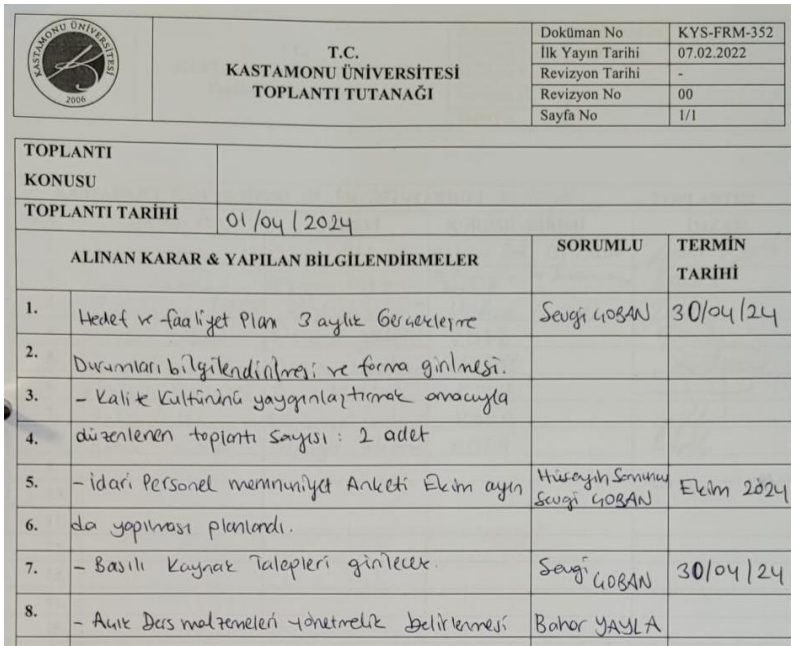 KASTAMONU ÜNİVERSİTESİ
2006
T.C.
KASTAMONU ÜNİVERSİTESİ
TOPLANTI TUTANAĞI
Doküman No KYS-FRM-352
İlk Yayın Tarihi 07.02.2022
Revizyon Tarihi -
Revizyon No 00
Sayfa No 1/1
TOPLANTI
KONUSU
TOPLANTI TARİHİ 01/04/2024
ALINAN KARAR & YAPILAN BİLGİLENDİRMELER SORUMLU TERMİN TARİHİ
1. Hedef ve faaliyet Plan 3 aylık Gerçekleşme Sevgi ÇOBAN 30/04/24
2. Durumları bilgilendirilmesi ve forma girilmesi.
3. - Kalite Kültürünü yaygınlaştırmak amacıyla
4. düzenlenen toplantı sayısı : 2 adet
5. - idari Personel memnuniyet Anketi Ekim ayın Hüseyin Sevgi ÇOBAN Ekim 2024
6. da yapılması planlandı.
7. - Basılı Kaynak Talepleri girilecek. Sevgi ÇOBAN 30/04/24
8. - Açık Ders malzemeleri yönetmelik belirlenmesi Bahar YAYLA